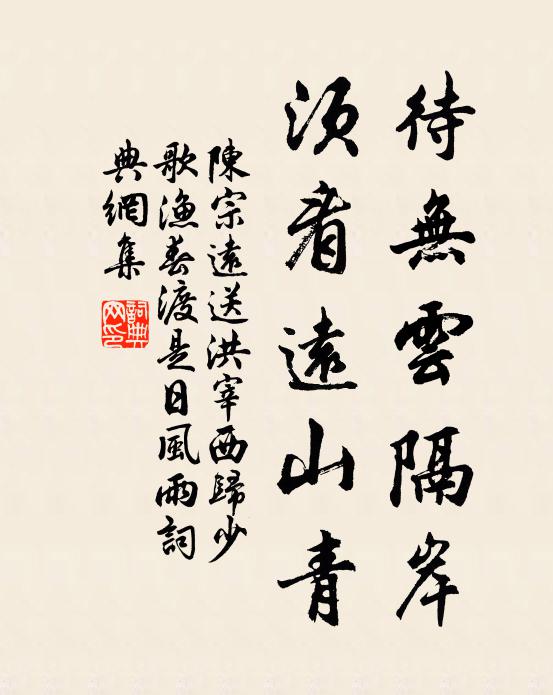 待無雲隔岸
須看遠山青
陳宗遠送洪宰西歸少
歌漁春渡是日風雨詞
典網集
詞典
网印